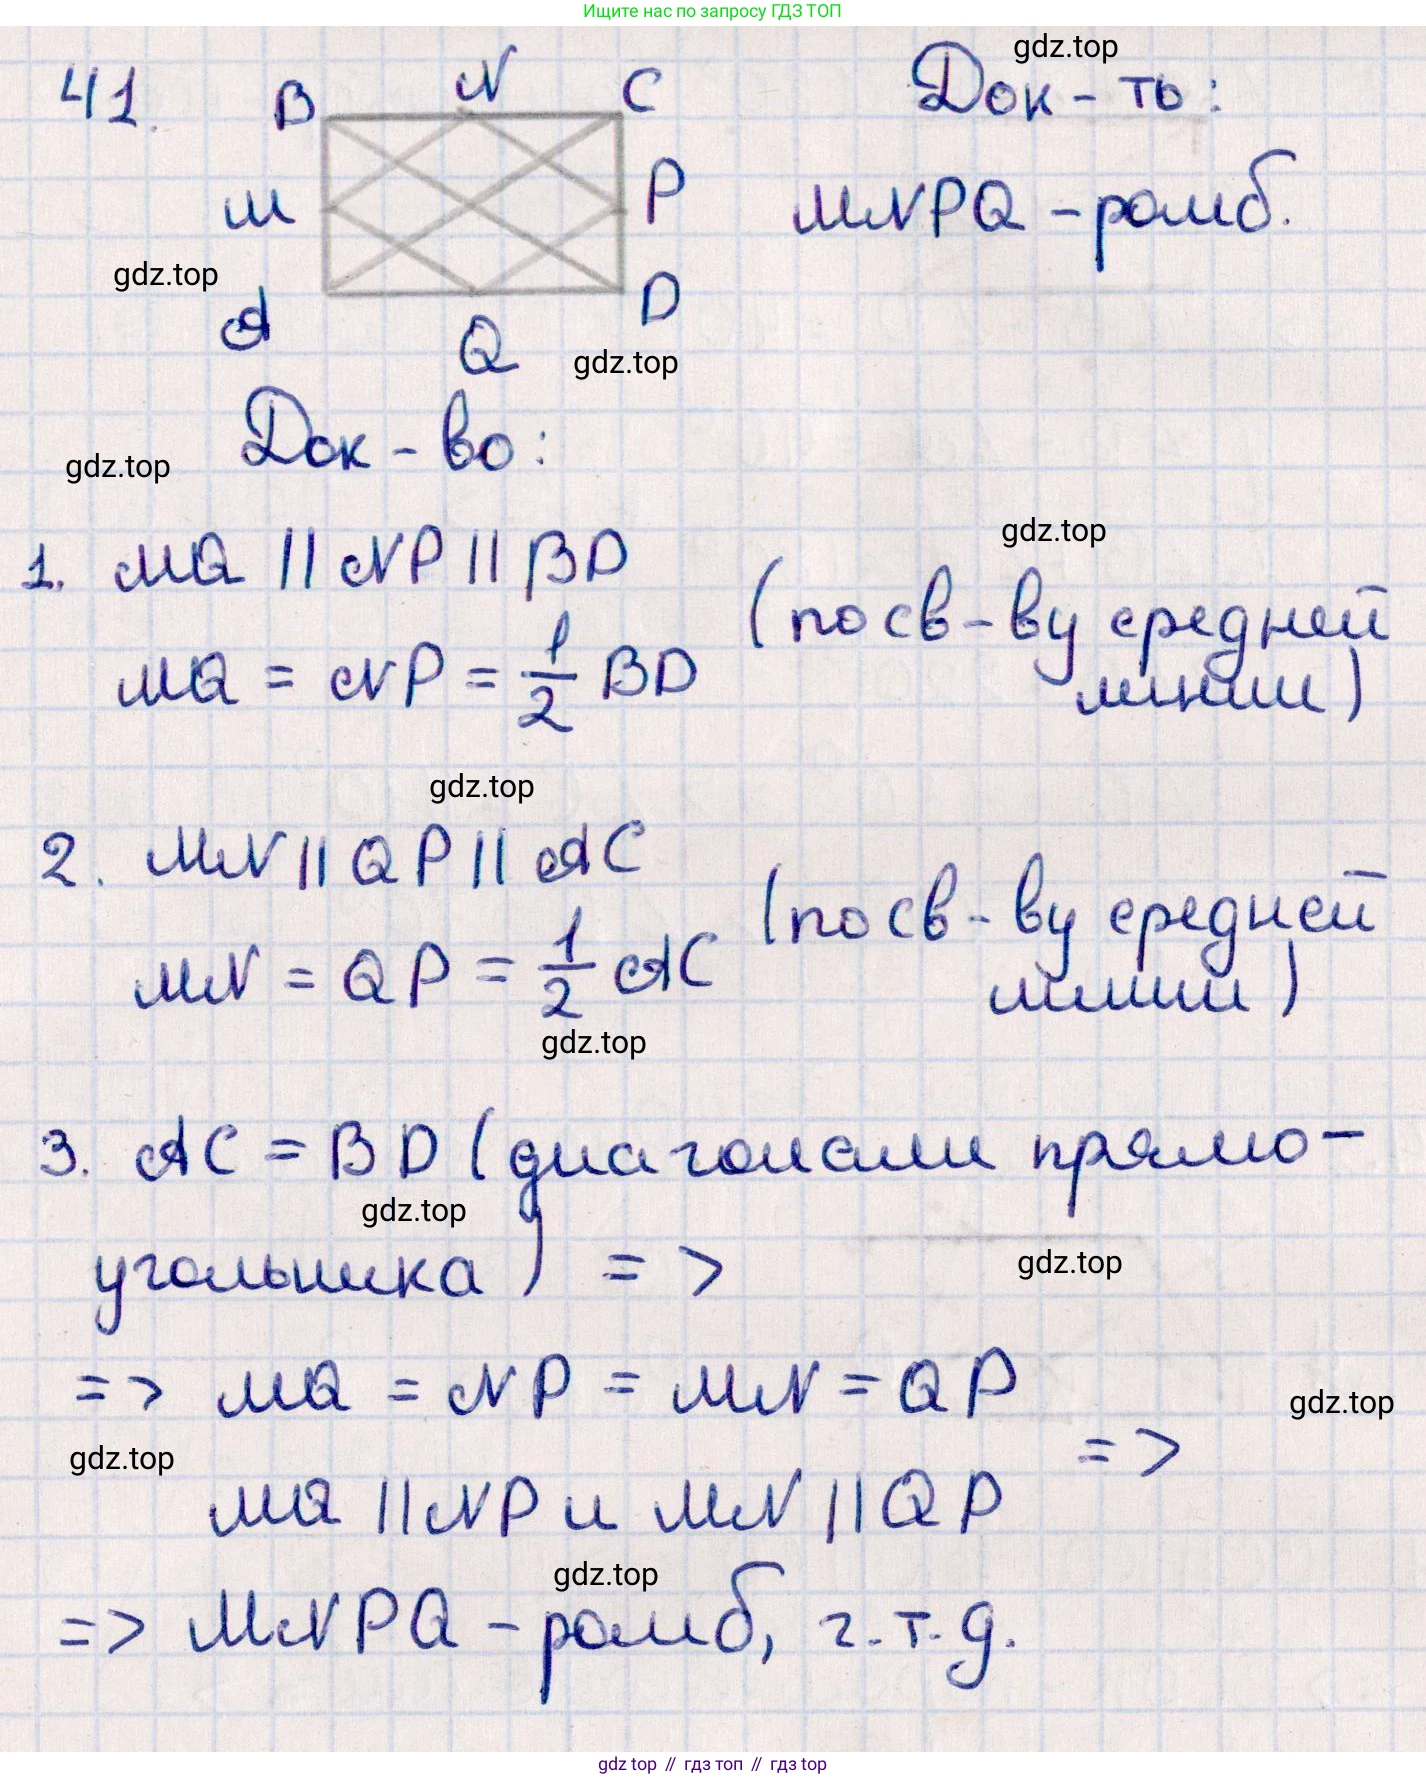 Ищите нас по запросу ГДЗ ТОП
41.
B N C
M P
A Q D
Док-ть:
MNPQ - ромб.
gdz.top
gdz.top
gdz.top
Док-во:
gdz.top
gdz.top
1. MQ || NP || BD
MQ = NP = 1/2 BD
(по св-ву средней
линии)
gdz.top
2. MN || QP || AC
MN = QP = 1/2 AC
(по св-ву средней
линии)
gdz.top
3. AC = BD (диагонали прямо-
gdz.top
угольника) =>
gdz.top
=> MQ = NP = MN = QP
gdz.top
=>
gdz.top
MQ || NP и MN || QP
gdz.top
=> MNPQ - ромб, ч.т.д.
gdz.top // гдз топ // гдз.top